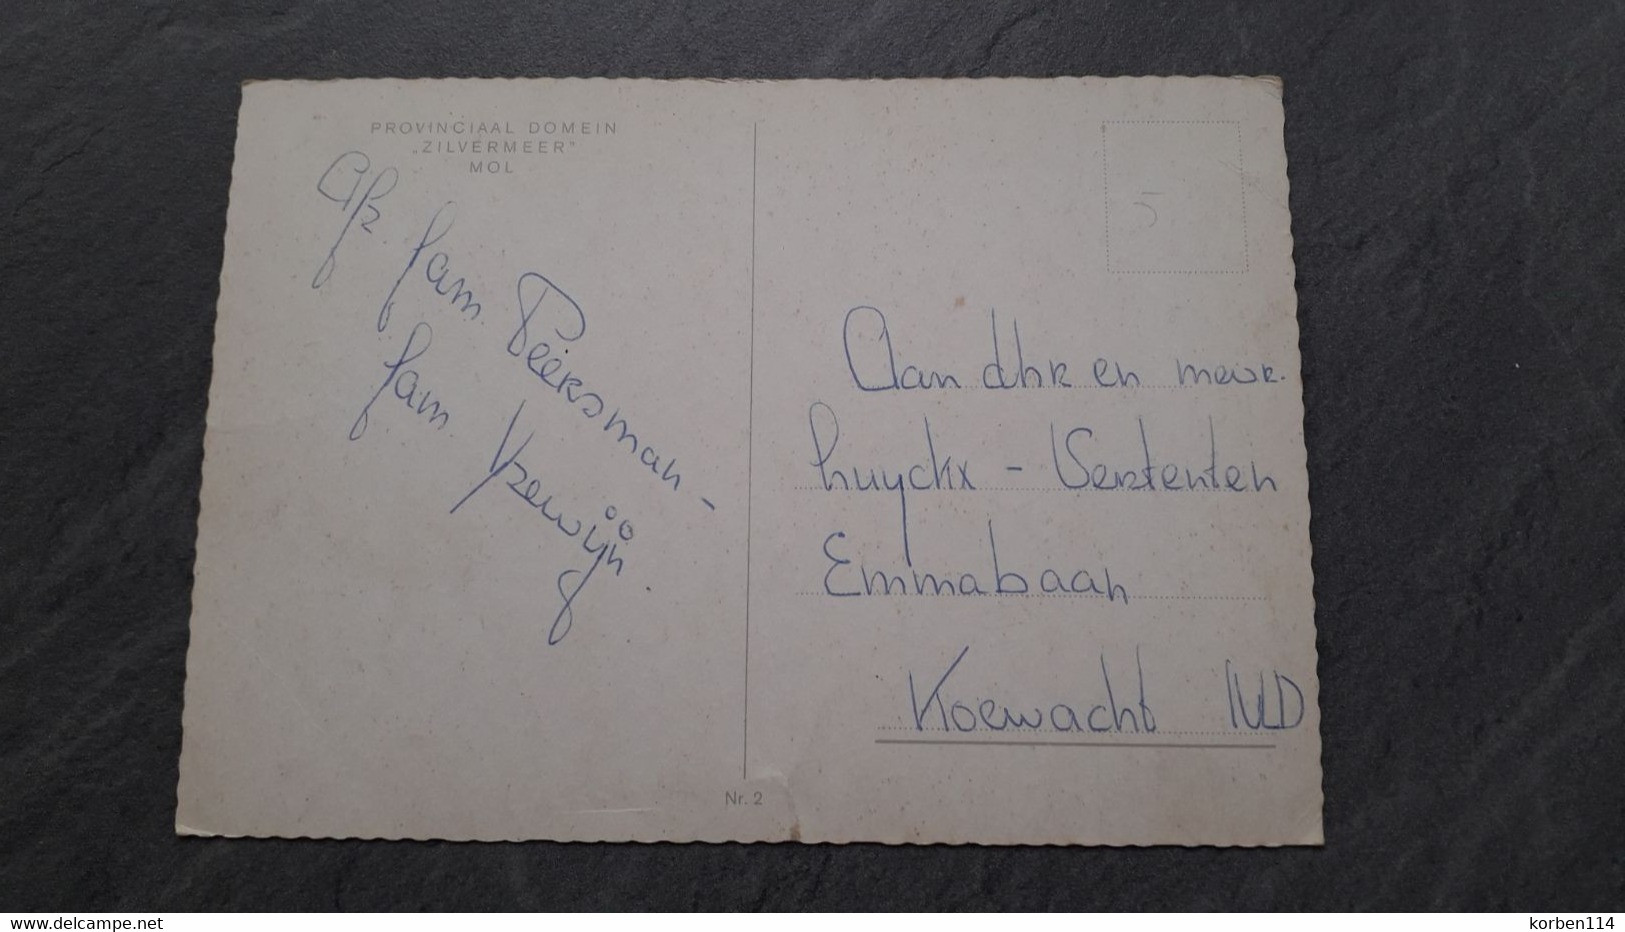 PROVINCIAAL DOMEIN
„ZILVERMEER"
MOL
Afz.
fam. Peersman -
fam.
5
Aan dhr en mevr.
Huyckx - Vertenten
Emmabaan
Koewacht NLD
Nr. 2
www.delcampe.net
korben114